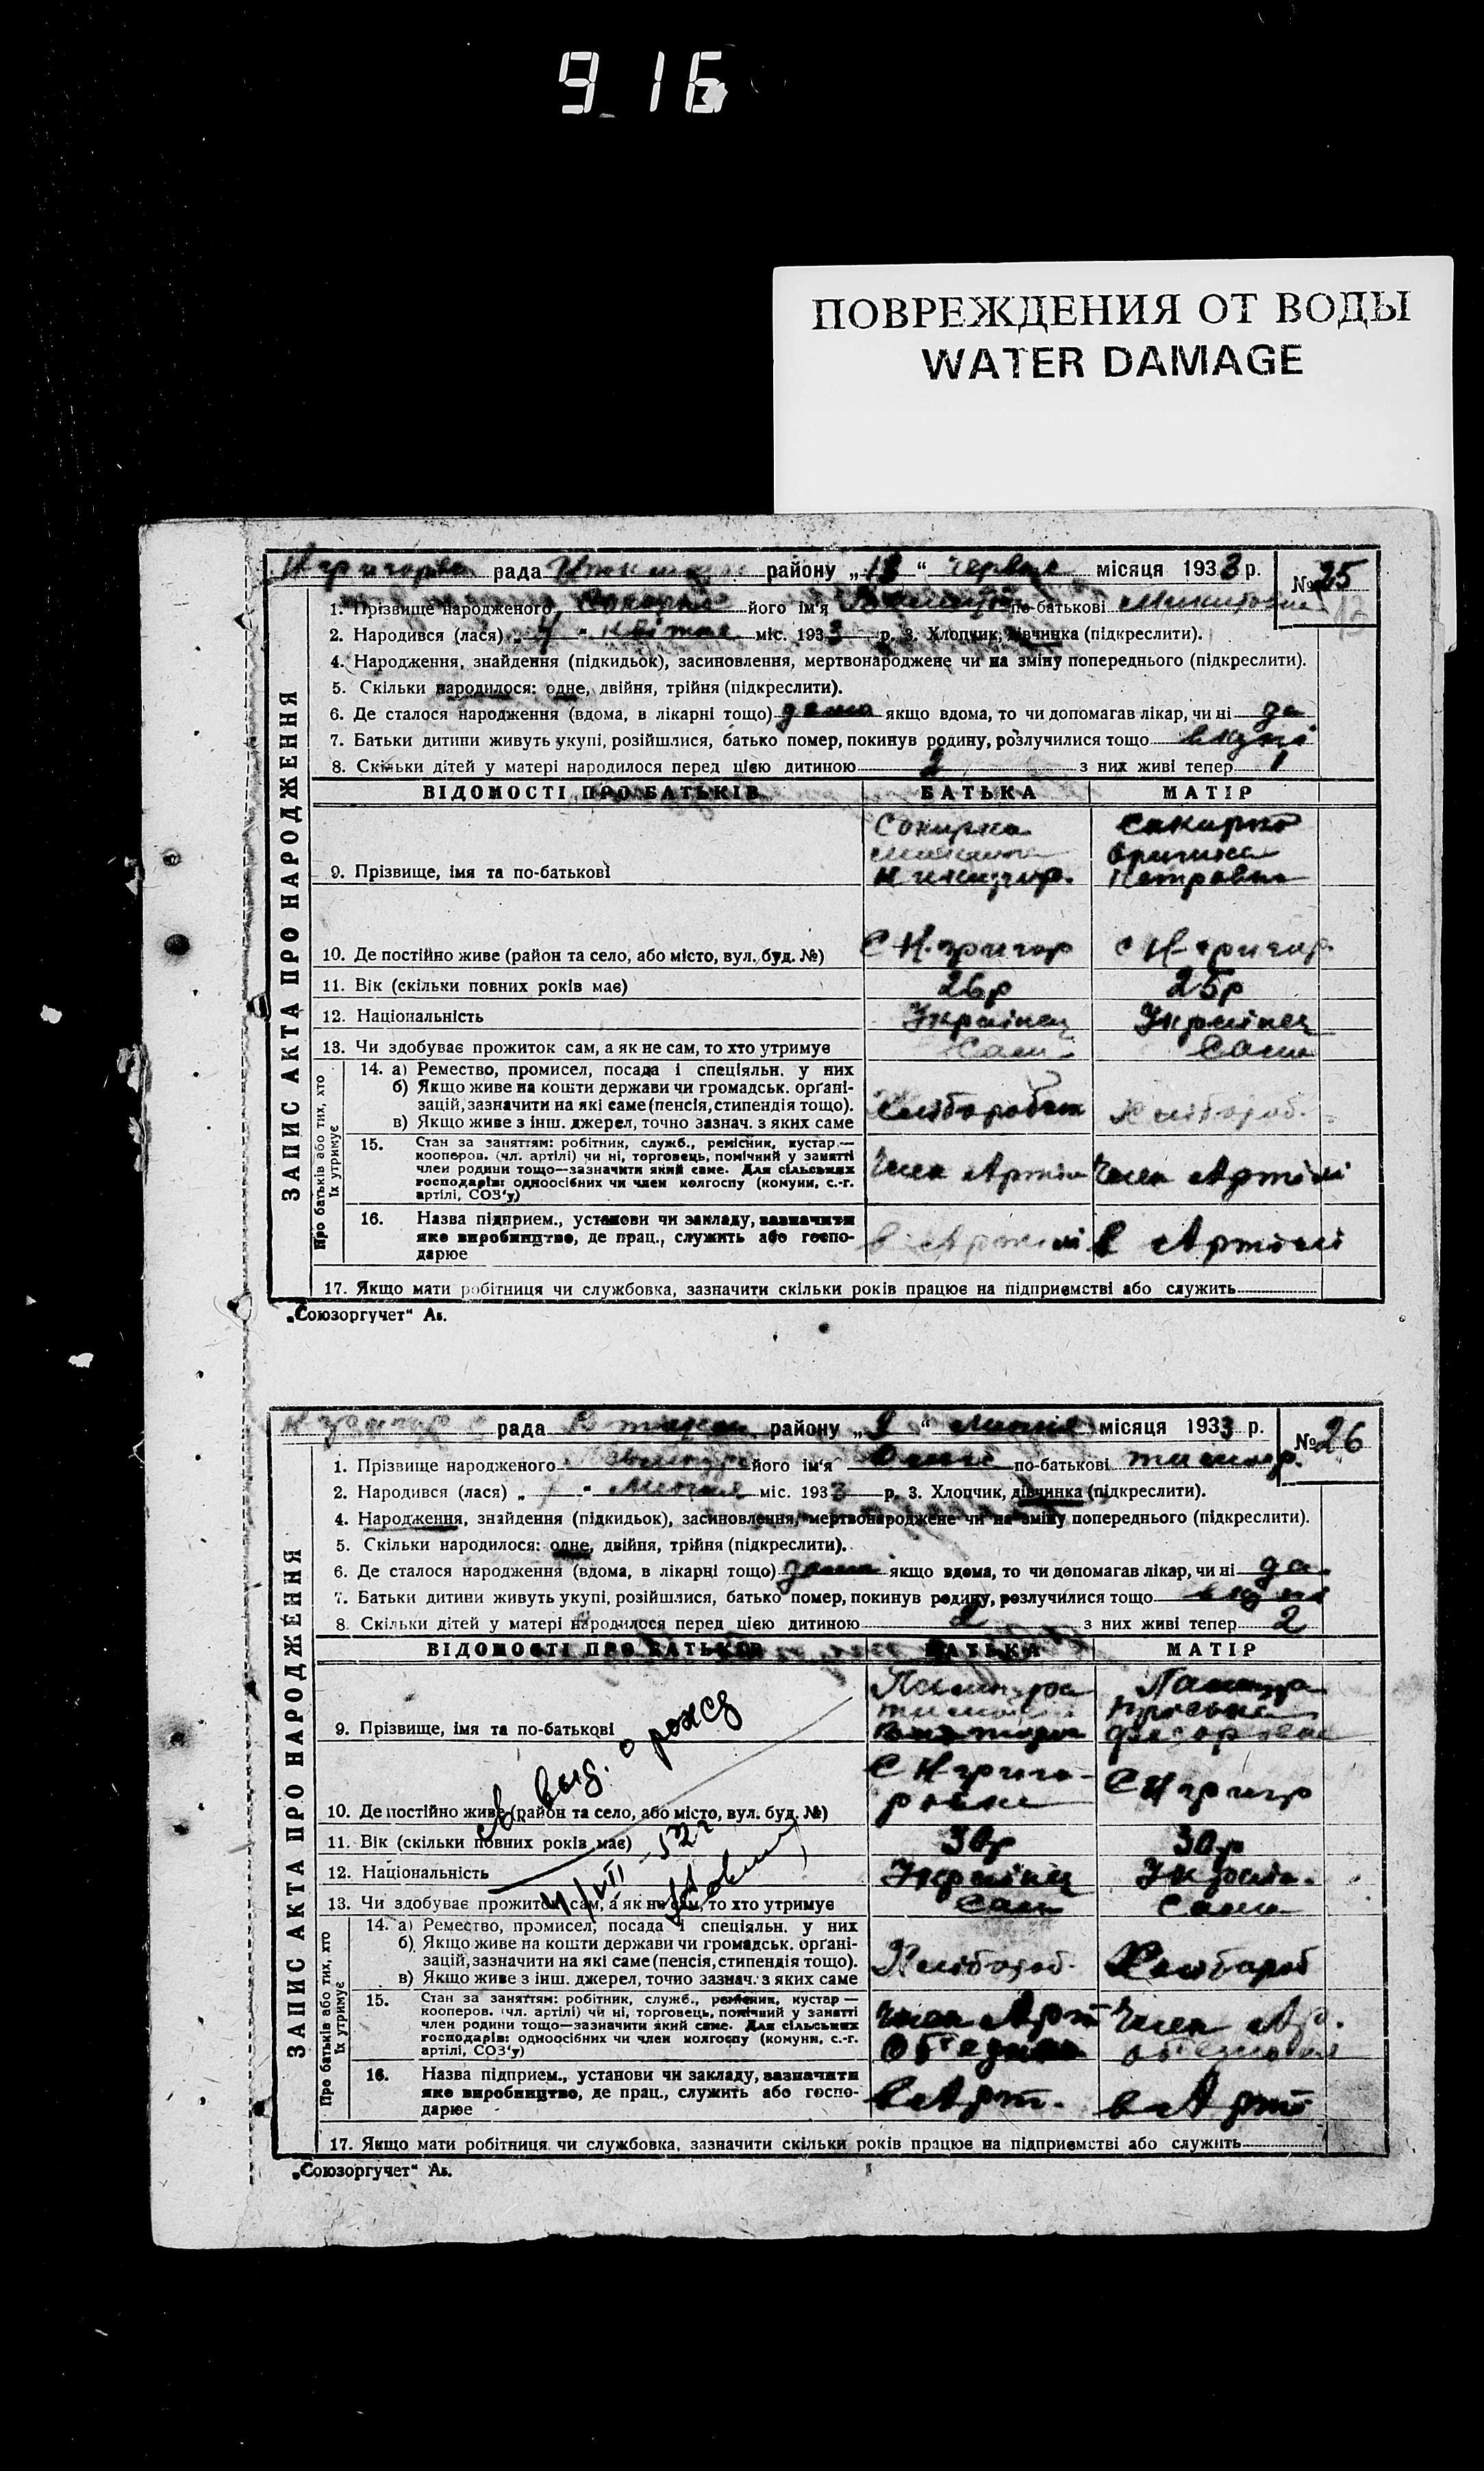 9 16
ПОВРЕЖДЕНИЯ ОТ ВОДЫ
WATER DAMAGE
рада району „13“ червня місяця 1933 р. № 25
1. Прізвище народженого його ім'я по-батькові
2. Народився (лася) „4“ квітня міс. 1933 р. 3. Хлопчик, дівчинка (підкреслити).
4. Народження, знайдення (підкидьок), засиновлення, мертвонароджене чи на зміну попереднього (підкреслити).
5. Скільки народилося: одне, двійня, трійня (підкреслити).
6. Де сталося народження (вдома, в лікарні тощо) дома якщо вдома, то чи допомагав лікар, чи ні да
7. Батьки дитини живуть укупі, розійшлися, батько помер, покинув родину, розлучилися тощо вкупі
8. Скільки дітей у матері народилося перед цією дитиною 2 з них живі тепер 1
ЗАПИС АКТА ПРО НАРОДЖЕННЯ
ВІДОМОСТІ ПРО БАТЬКІВ БАТЬКА МАТІР
9. Прізвище, імя та по-батькові
Петровна
10. Де постійно живе (район та село, або місто, вул. буд. №) С Н.григор с Н-григор
11. Вік (скільки повних років має) 26р 25р
12. Національність Українец Українец
13. Чи здобуває прожиток сам, а як не сам, то хто утримує Сам Сама
Про батьків або тих, хто їх утримує
14. а) Ремество, промисел, посада і спеціяльн. у них
б) Якщо живе на кошти держави чи громадськ. орґані-
зацій, зазначити на які саме (пенсія, стипендія тощо).
в) Якщо живе з інш. джерел, точно зазнач. з яких саме
Хлібороб Хлібороб.
15. Стан за заняттям: робітник, служб., ремісник, кустар—
кооперов. (чл. артілі) чи ні, торговець, помічний у занятті
член родини тощо—зазначити який саме. Для сільських
господарів: одноосібних чи член колгоспу (комуни, с.-г.
артілі, СОЗ'у)
Член Артілі Член Артілі
16. Назва підприєм., установи чи закладу, зазначити
яке виробництво, де прац., служить або госпо-
дарює
в Артілі в Артілі
17. Якщо мати робітниця чи службовка, зазначити скільки років працює на підприємстві або служить
„Союзоргучет“ Ав.
рада району „ “ місяця 1933 р. № 26
1. Прізвище народженого його ім'я по-батькові
2. Народився (лася) „ “ міс. 1933 р. 3. Хлопчик, дівчинка (підкреслити).
4. Народження, знайдення (підкидьок), засиновлення, мертвонароджене чи на зміну попереднього (підкреслити).
5. Скільки народилося: одне, двійня, трійня (підкреслити).
6. Де сталося народження (вдома, в лікарні тощо) дома якщо вдома, то чи допомагав лікар, чи ні да
7. Батьки дитини живуть укупі, розійшлися, батько помер, покинув родину, розлучилися тощо вкупі
8. Скільки дітей у матері народилося перед цією дитиною 2 з них живі тепер 2
ЗАПИС АКТА ПРО НАРОДЖЕННЯ
ВІДОМОСТІ ПРО БАТЬКІВ БАТЬКА МАТІР
9. Прізвище, імя та по-батькові
выд. о рожд
10. Де постійно живе (район та село, або місто, вул. буд. №) С Н григо- С Н григор
11. Вік (скільки повних років має) 30р 30р
12. Національність Українец Україн.
13. Чи здобуває прожиток сам, а як не сам, то хто утримує Сам Сама
Про батьків або тих, хто їх утримує
14. а) Ремество, промисел, посада і спеціяльн. у них
б) Якщо живе на кошти держави чи громадськ. орґані-
зацій, зазначити на які саме (пенсія, стипендія тощо).
в) Якщо живе з інш. джерел, точно зазнач. з яких саме
Хлібороб. Хлібороб
15. Стан за заняттям: робітник, служб., ремісник, кустар—
кооперов. (чл. артілі) чи ні, торговець, помічний у занятті
член родини тощо—зазначити який саме. Для сільських
господарів: одноосібних чи член колгоспу (комуни, с.-г.
артілі, СОЗ'у)
Член Арт Член Ар.
16. Назва підприєм., установи чи закладу, зазначити
яке виробництво, де прац., служить або госпо-
дарює
в Арт. в Арт
17. Якщо мати робітниця чи службовка, зазначити скільки років працює на підприємстві або служить
„Союзоргучет“ Ав.